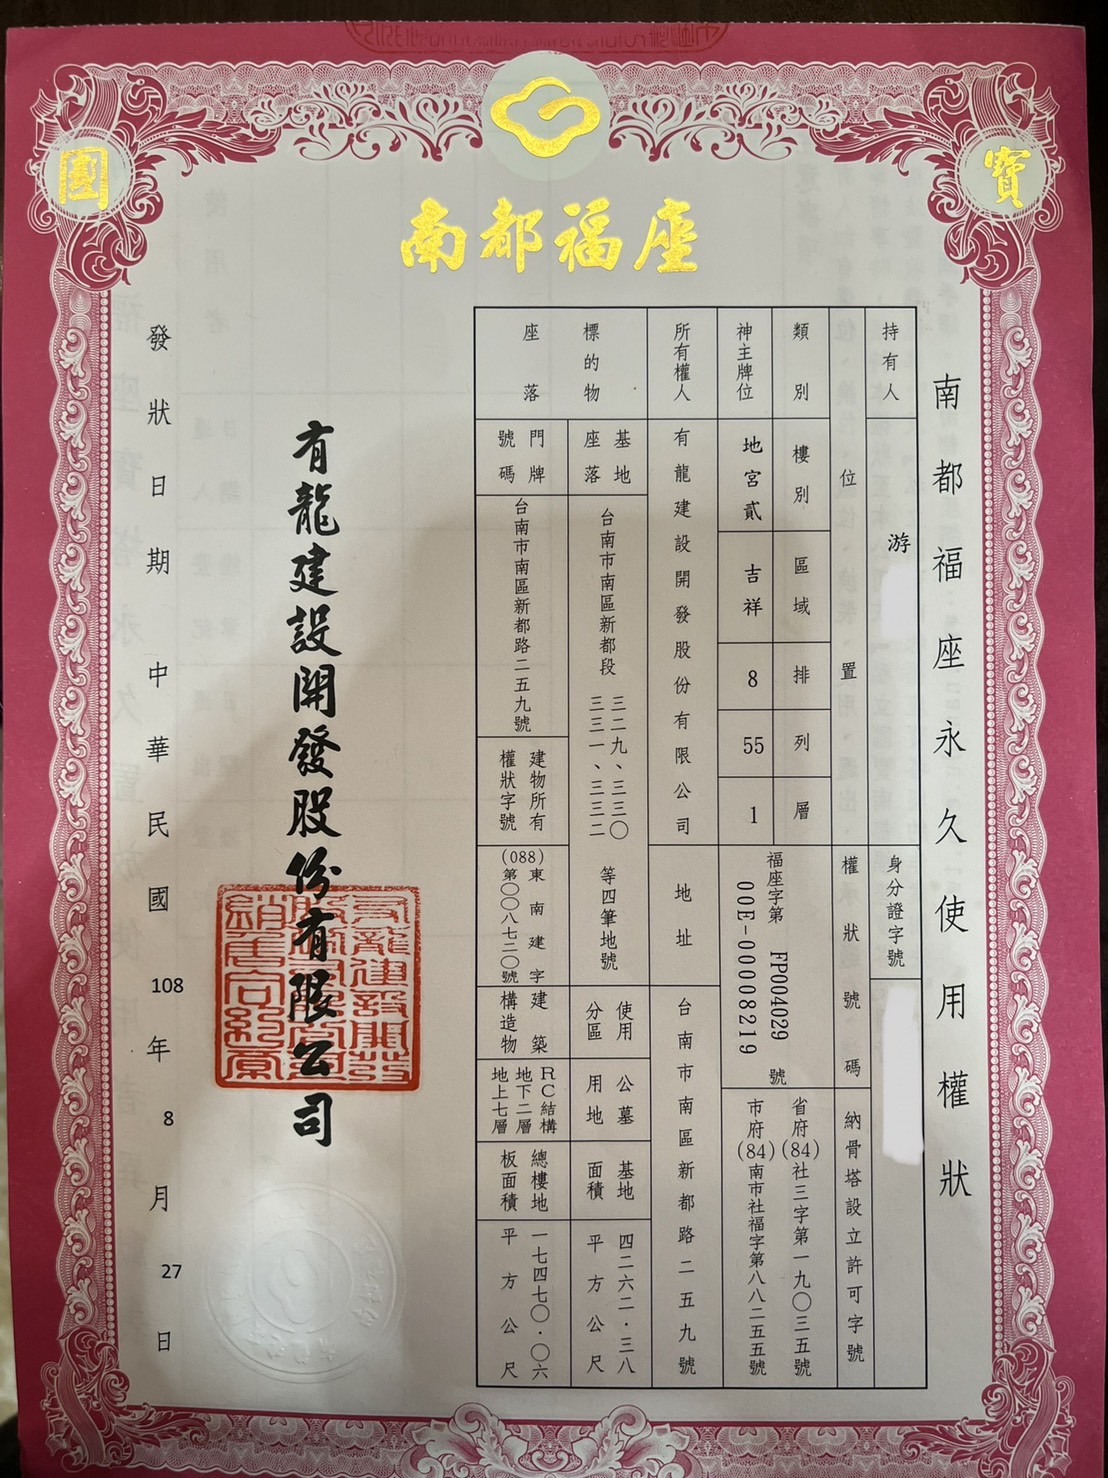 寶園
南都福座
南都福座永久使用權狀
持有人
游
身分證字號
位置
權狀號碼
納骨塔設立許可字號
類別
樓別
區域
排
列
層
福座字第 FP004029 號
00E-00008219
省府(84)社三字第一九〇三五號
市府(84)南市社福字第八八二五五號
神主牌位
地宮貳
吉祥
8
55
1
所有權人
有龍建設開發股份有限公司
地址
台南市南區新都路二五九號
標的物
座落
基地
座落
台南市南區新都段
三二九、三三〇
三三一、三三二
等四筆地號
使用
分區
公墓
用地
基地
面積
四二六二.三八
平方公尺
門牌
號碼
台南市南區新都路二五九號
建物所有
權狀字號
(088)東南建字
第〇〇八七二〇號
建築
構造物
RC結構
地下二層
地上七層
總樓地
板面積
一七四七〇.〇六
平方公尺
有龍建設開發股份有限公司
發狀日期 中華民國 108 年 8 月 27 日